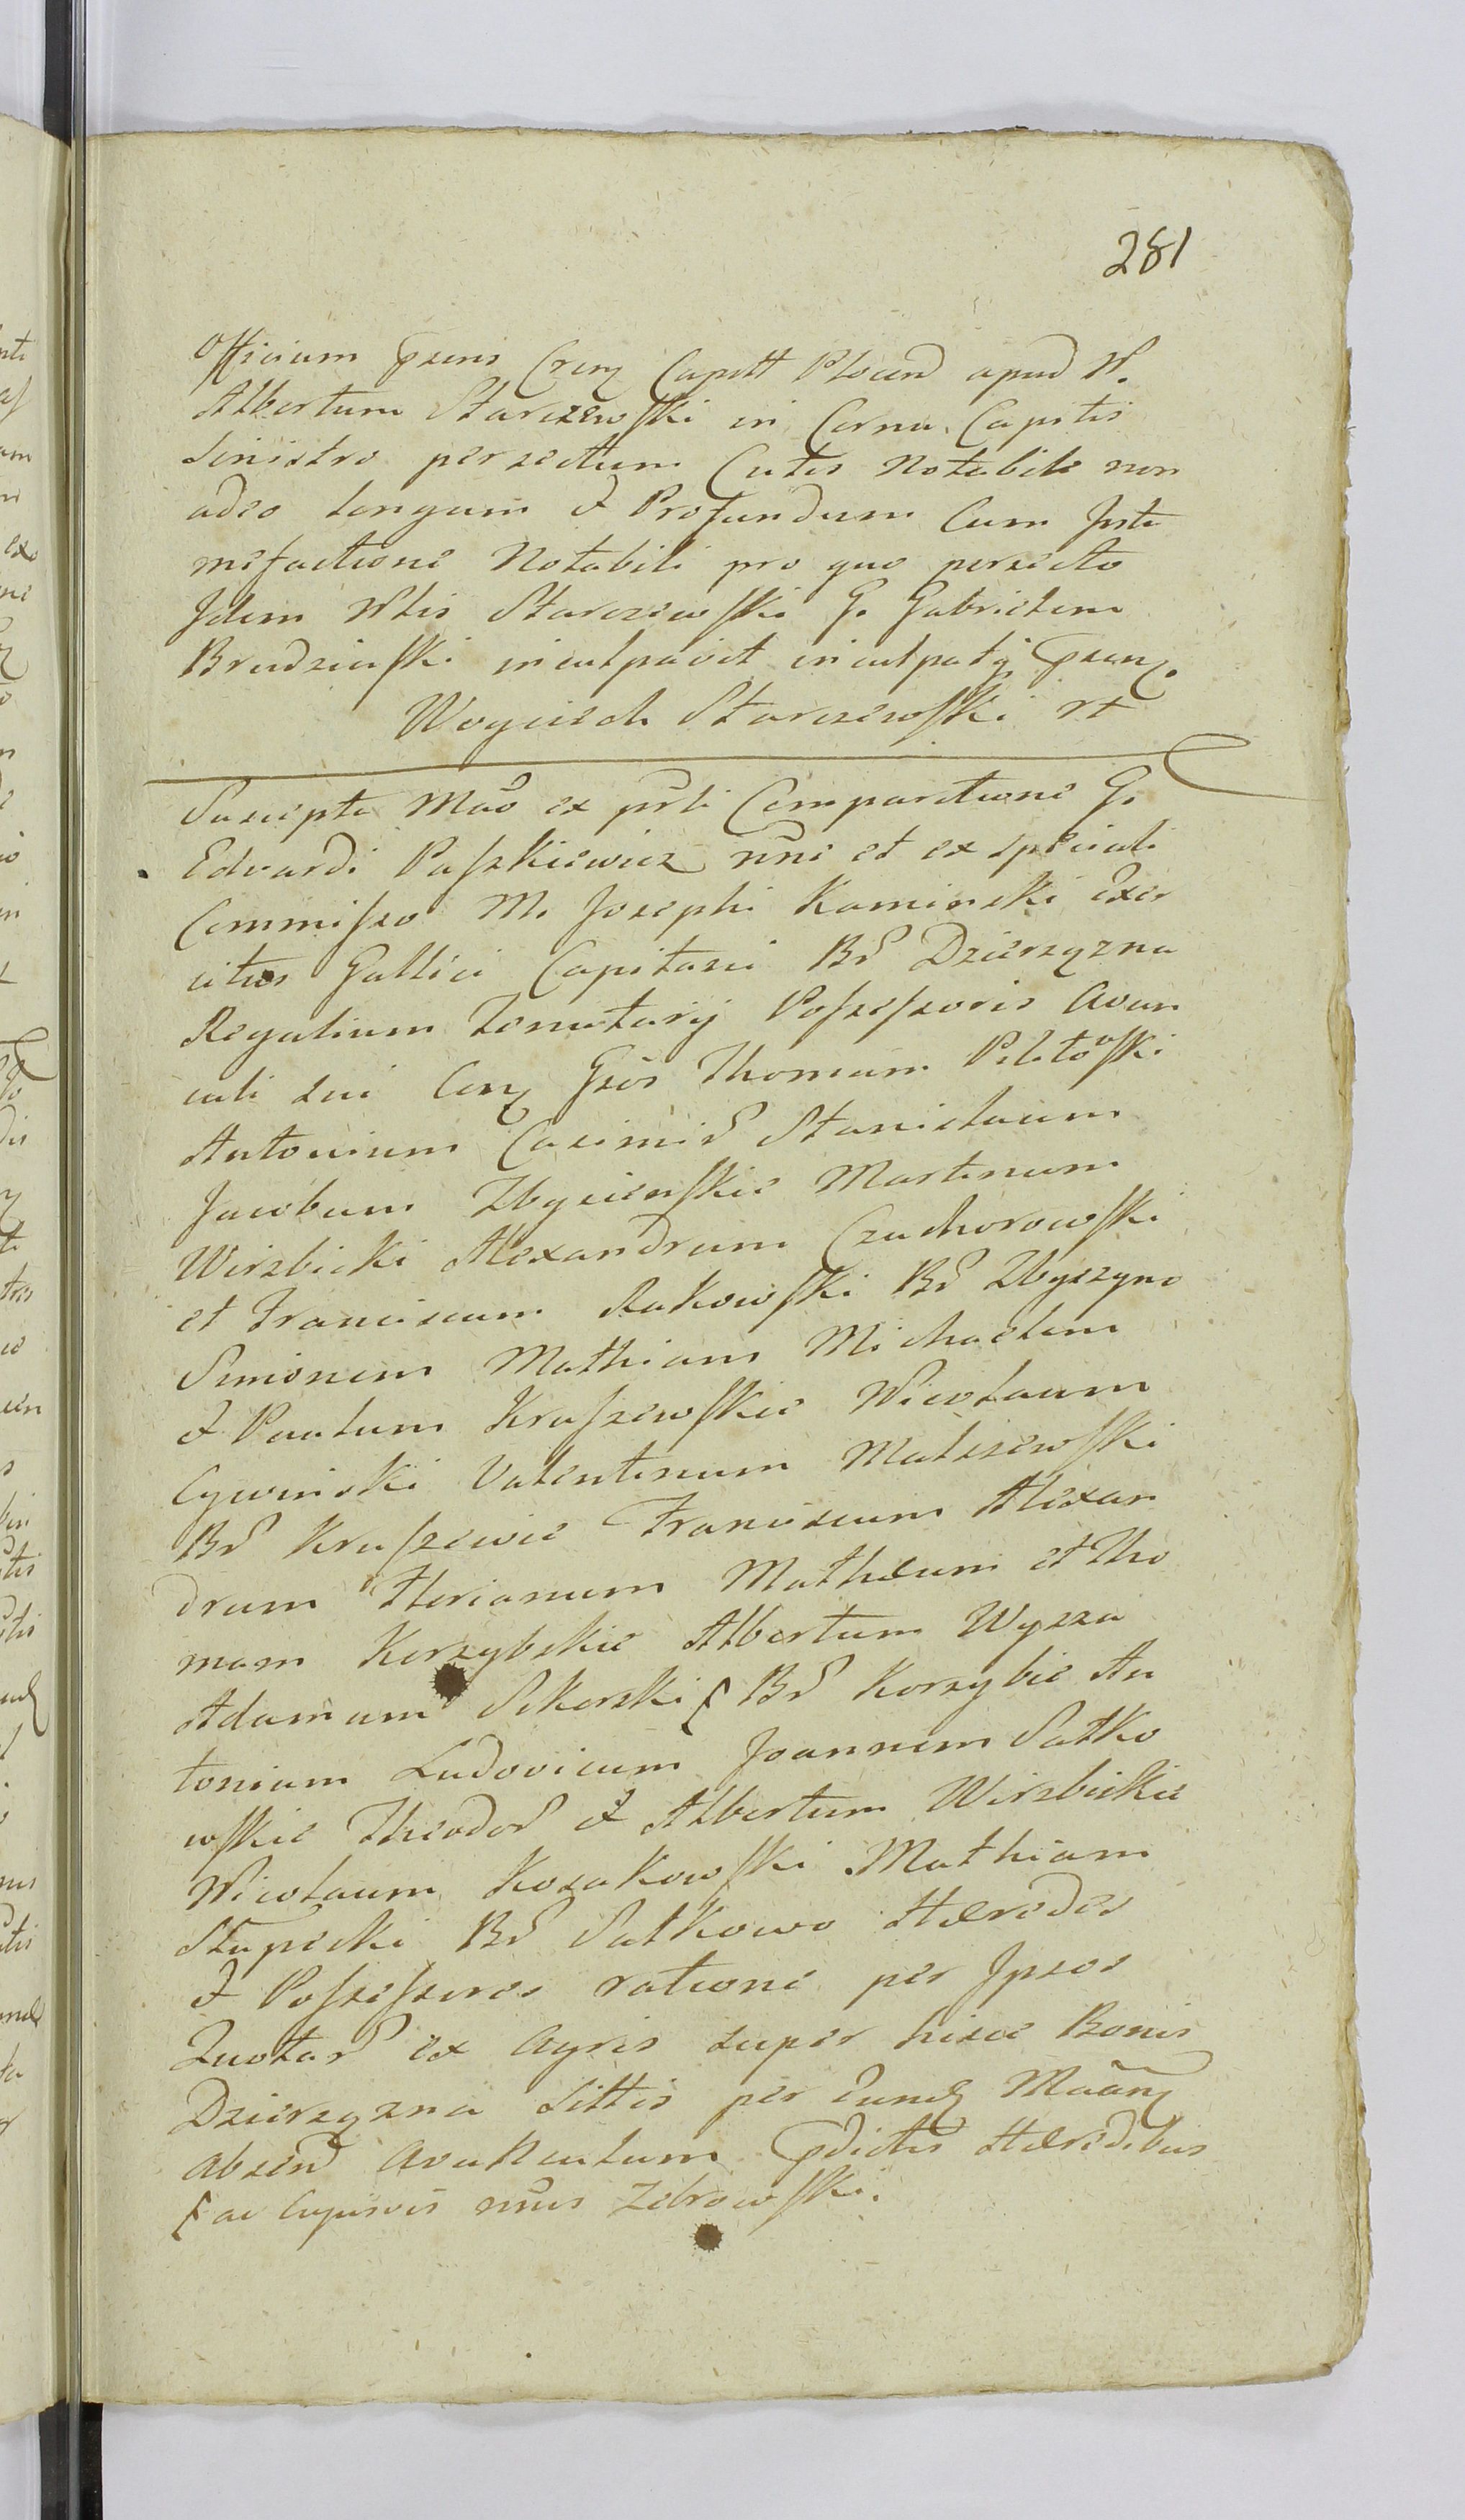 281
Officium Præns Cren Capitt Plocen apud N.
Albertum Starczewski in Cornu Capitis
Sinistro persectum Cutis Notabile non
adeo Longum & Profundum Cum Intu
mefactione Notabili pro quo persecto
Idem Nblis Starczewski G. Gabrielem
Brudziński inculpavit
Woyciech Starczewski
Suscepta Mão ex prli Comparitione G.
Edvardi Paszkiewicz nñe et ex speciali
Commisso M. Josephi Kaminski Exer
citus Gallici Capitani Bd Dzierzązna
Regalium Tenutarij Possessoris Avun
culi sui Gsõs Thomam Piletowski
Antonium Casimir Stanislaum
Jacobum Zbyszewskie Martinum
Wirzbicki Alexandrum Czachorowski
et Franciscum Rakowski Bd Zbyszyno
Simonem Mathiam Michaelem
& Paulum Kraszewskie Nicolaum
Cywinski Valentinum Maliszewski
Bd Kraszewie Franciscum Alexan
drum Florianum Mathæum et Tho
mam Korzybskie Albertum Wyzza
Adamum Sikorski Bd Korzybie An
tonium Ludovicum Joannem Sutko
wskie Theodor & Albertum Wirzbickie
Nicolaum Kozakowski Mathiam
Słupecki Bd Sutkowo Hæredes
& Possessores ratione per Ipsos
Quotar ex Agris super hisce Bonis
Dzierzązna Sittis per Eund Mãan
absen Avunculum Pdictis Hæredibus
ac Cujusvis nñus Zebrowski.
nti
am
exo
ne